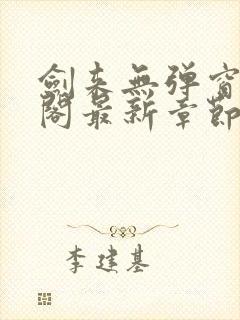 劍來無彈窗
閣最新章節
李建基